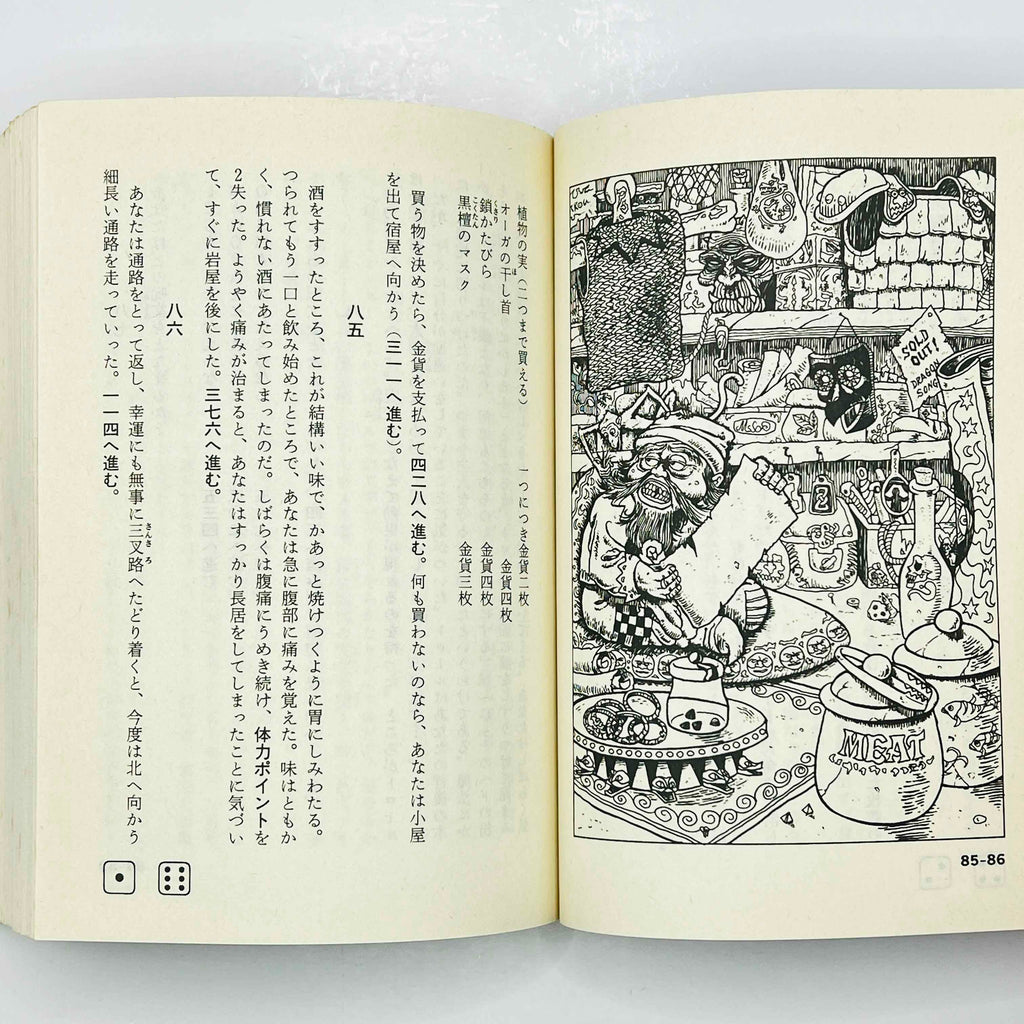 KSUZ
SOLD
OUT!
DRAGON
SONG
2
MEAT
85-86
植物の実(二つまで買える) 一つにつき金貨二枚
オーガの干し首 金貨四枚
鎖かたびら 金貨四枚
黒檀のマスク 金貨三枚
買う物を決めたら、金貨を支払って四二八へ進む。何も買わないのなら、あなたは小屋
を出て宿屋へ向かう(三一一へ進む)。
八五
酒をすすったところ、これが結構いい味で、かあっと焼けつくように胃にしみわたる。
つられてもう一口と飲み始めたところで、あなたは急に腹部に痛みを覚えた。味はともか
く、慣れない酒にあたってしまったのだ。しばらくは腹痛にうめき続け、体力ポイントを
2失った。ようやく痛みが治まると、あなたはすっかり長居をしてしまったことに気づい
て、すぐに岩屋を後にした。三七六へ進む。
八六
あなたは通路をとって返し、幸運にも無事に三叉路へたどり着くと、今度は北へ向かう
細長い通路を走っていった。一一四へ進む。